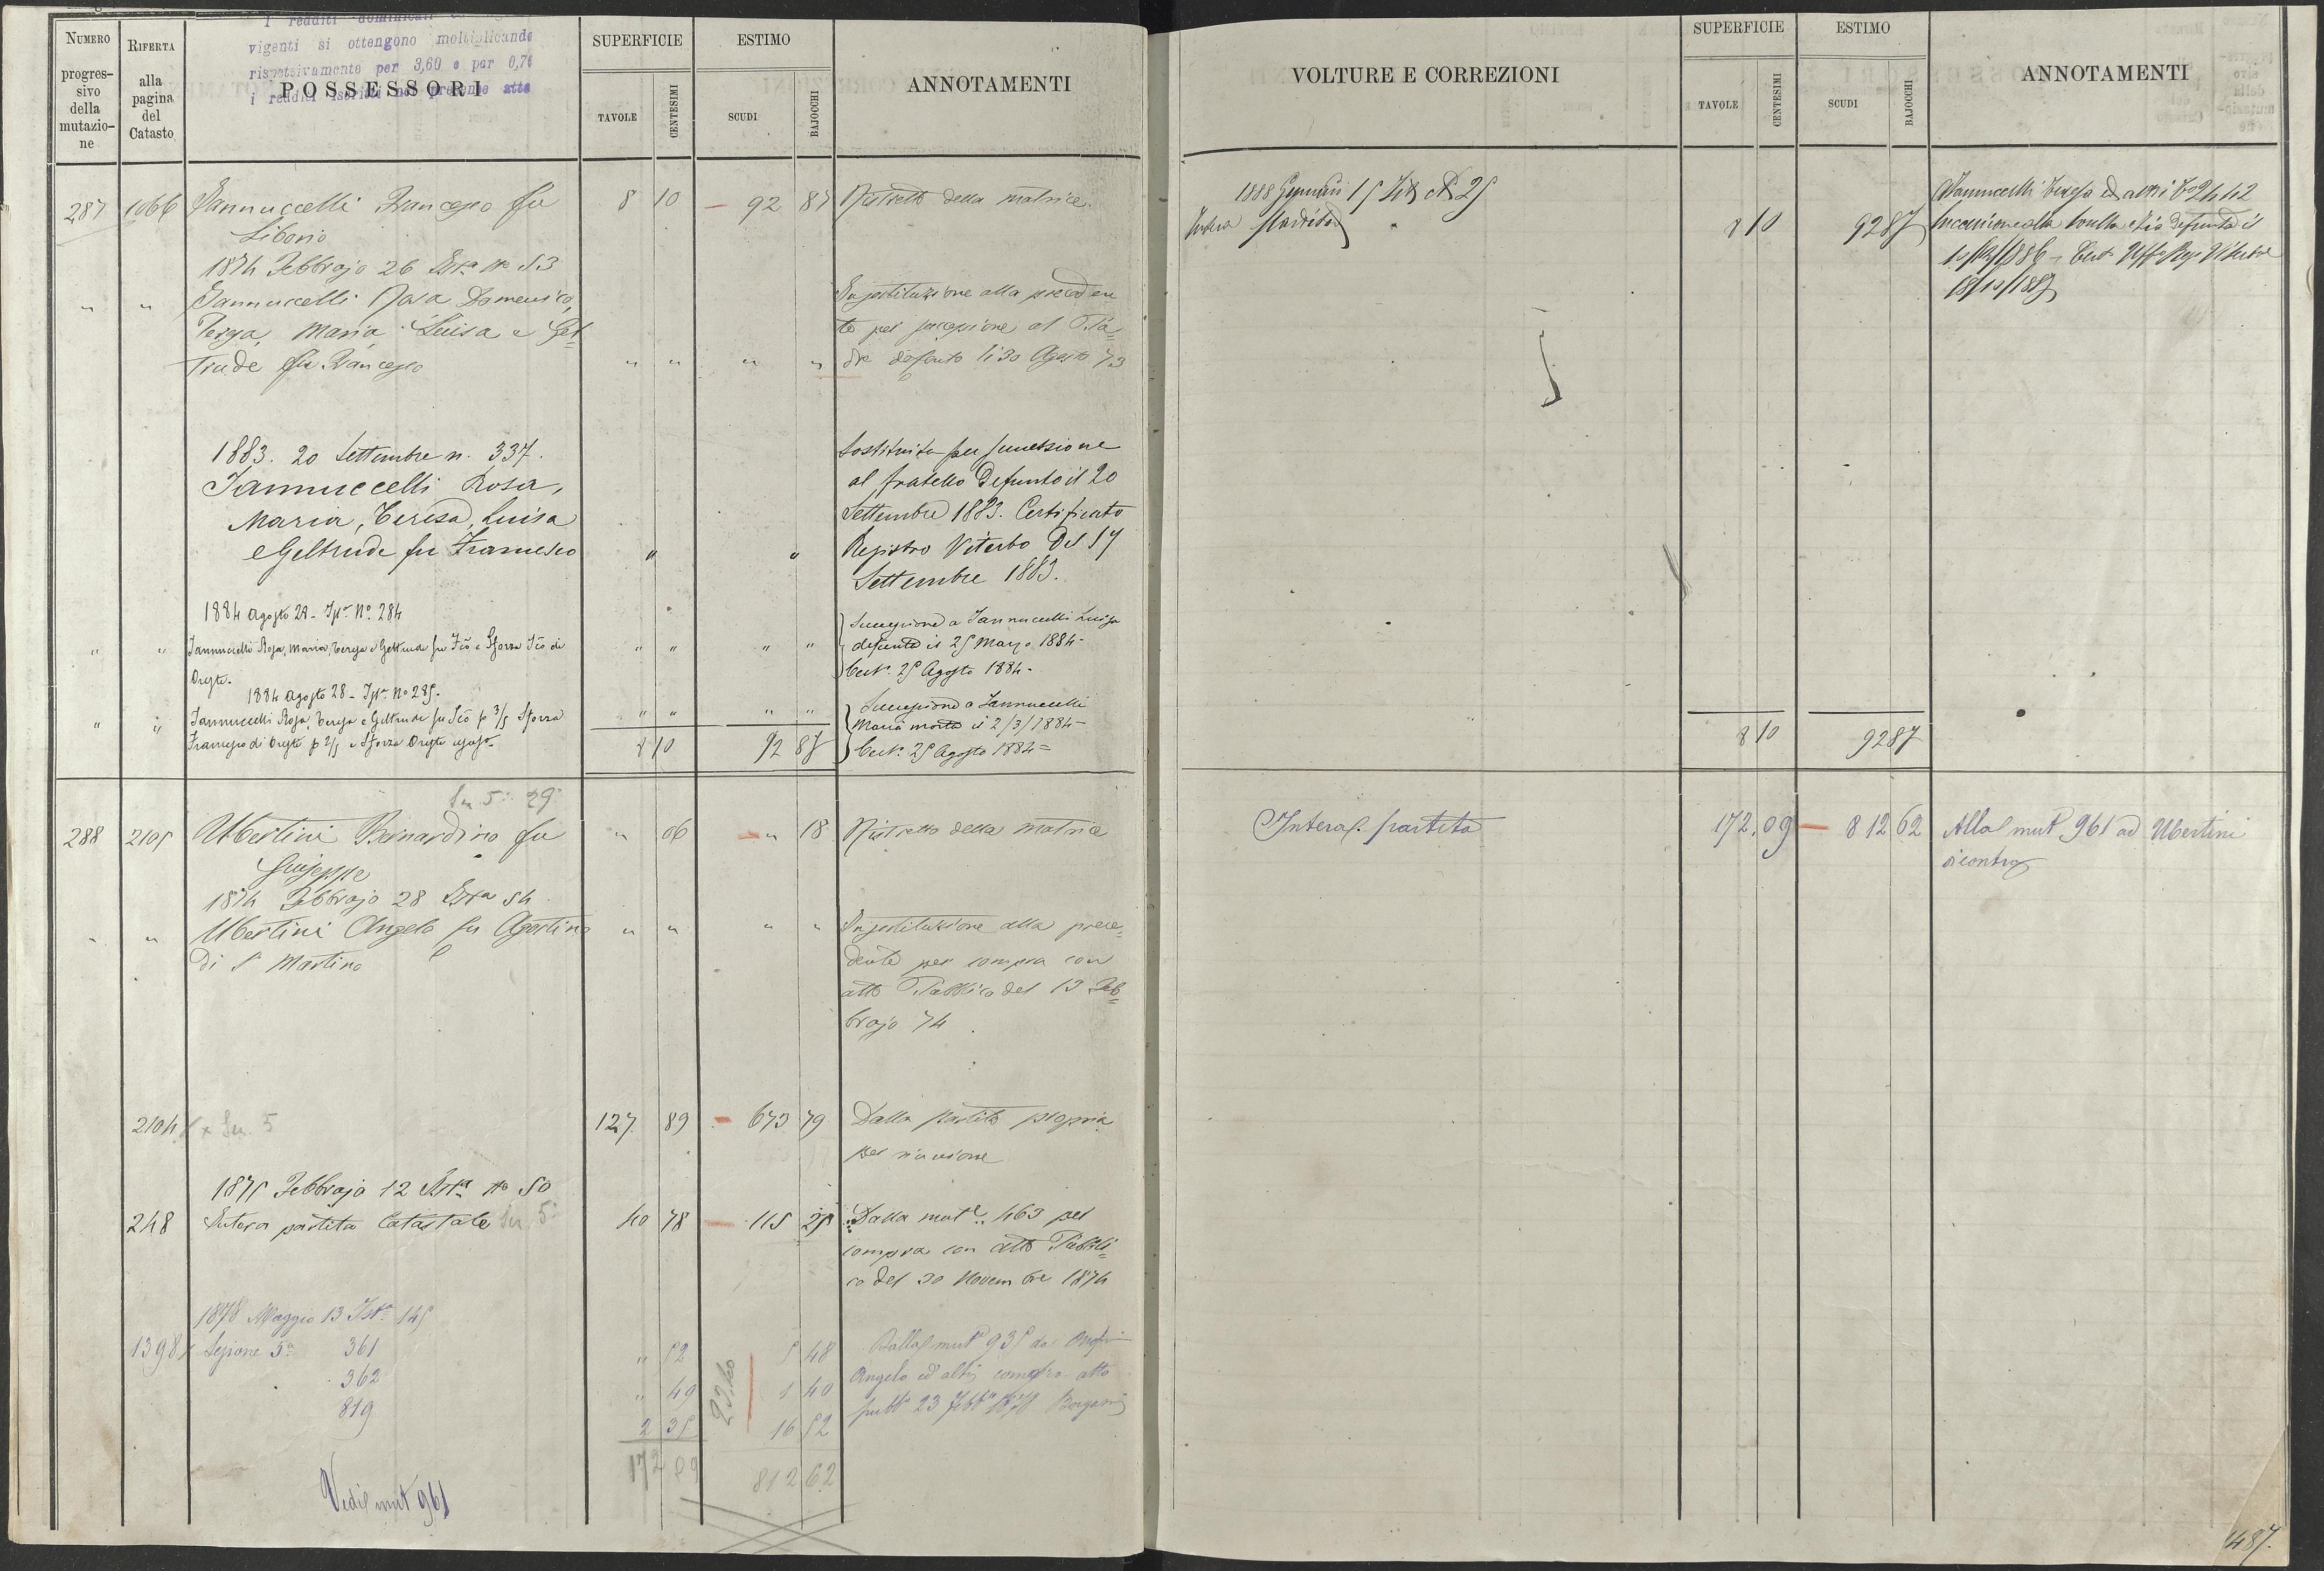 I redditi dominicali
vigenti si ottengono moltiplicando
rispettivamente per 3,60 e per 0,70
i redditi iscritti nel presente atto
NUMERO progres-
sivo
della
mutazio-
ne
RIFERTA
alla
pagina
del
Catasto
POSSESSORI
SUPERFICIE
TAVOLE CENTESIMI
ESTIMO
SCUDI BAJOCCHI
ANNOTAMENTI
287 1066 Jannuccelli Francesco fu 8 10 92 87 Ristretto della matrice
Liborio
1874 Febbrajo 26 Ista No 53
" " Jannuccelli Rosa Domenico, In sostituzione alla preceden
Teresa, Maria Luisa e Gel= te per successione al Pa
trude fu Francesco " " " " dre defunto li 30 Agosto 73
1883. 20 Settembre n. 337. Sostituita per successione
Jannuccelli Rosa, al fratello defunto il 20
Maria, Teresa, Luisa Settembre 1883. Certificato
e Geltrude fu Francesco " " Registro Viterbo del 17
Settembre 1883.
1884 Agosto 28 - No. 284 Successione a Jannuccelli Luisa
" " Jannuccelli Rosa, Maria, Teresa e Geltrude fu Fco e Sforza Fco di " " " " defunta il 25 Marzo 1884 -
Oreste. Cert. 25 Agosto 1884 -
1884 Agosto 28 - No 285. Successione a Jannuccelli
" " Jannuccelli Rosa, Teresa e Geltrude fu Fco p 3/5 Sforza " " " " Maria morta il 2/3/1884 -
Francesco di Oreste p 2/5 e Sforza Oreste usufo. 8 10 92 87 Cert. 25 Agosto 1884 =
Sez 5a 29
288 2105 Ubertini Bernardino fu " 06 " 18 Ristretto della matrice
Giuseppe
1874 Febbrajo 28 Ista 54
" " Ubertini Angelo fu Agostino " " " " In sostituzione alla prece=
di S. Martino dente per compra con
atto Pubblico del 13 Feb=
brajo 74
2104 x Sez. 5 127 89 673 79 Dalla partita propria
per riunione
1875 Febbrajo 12 Ista No 50
248 Intera partita Catastale Sez. 5a 40 78 115 25 Dalla mute. 463 per
compra con atto Pubbli=
co del 30 Novembre 1874
1878 Maggio 13 Ista 145
1398 x Sezione 5a 361 " 52 5 48 Dalla mut 935 da
362 " 49 1 40 Angelo ed altri compra atto
819 2 35 16 52 pubb 23 Febb 1878
23,40
172 09 812 62
Vedi mut 961
VOLTURE E CORREZIONI
SUPERFICIE
TAVOLE CENTESIMI
ESTIMO
SCUDI BAJOCCHI
ANNOTAMENTI
1888 Gennaio 15 No 25 Jannuccelli Teresa ed altri 2442
Intera partita 8 10 92 87 Successione alla sorella e zia defunta il
1886 - Cert Uff Reg Viterbo
8 10 92 87
Intera partita 172.09 812 62 Alla mut 961 ad Ubertini
dicontro
487.